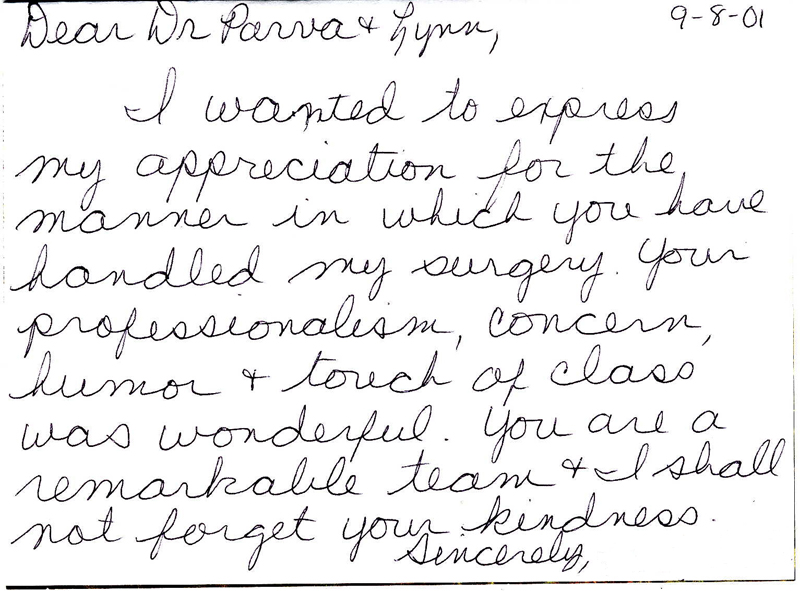 Dear Dr Parva & Lynn, 9-8-01
I wanted to express
my appreciation for the
manner in which you have
handled my surgery. Your
professionalism, concern,
humor & touch of class
was wonderful. You are a
remarkable team & I shall
not forget your kindness.
Sincerely,